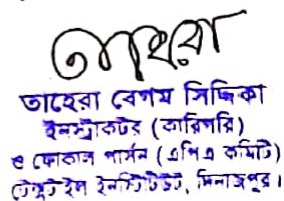 তাহেরা
তাহেরা বেগম সিদ্দিকা
ইনস্ট্রাকটর (কারিগরি)
ও ফোকাল পার্সন (এপিএ কমিটি)
টেক্সটাইল ইনস্টিটিউট, দিনাজপুর।